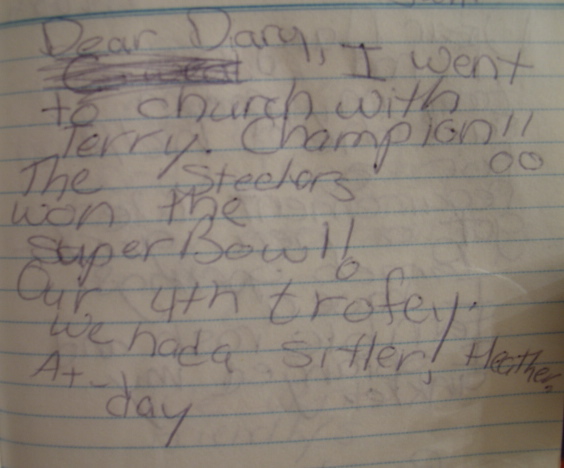 Dear Dary, I went
to church with
Terry. Champion!!
The Steelors
won the
SuperBowl!
Our 4th trofey.
We had a sitter! Heather.
At-
day